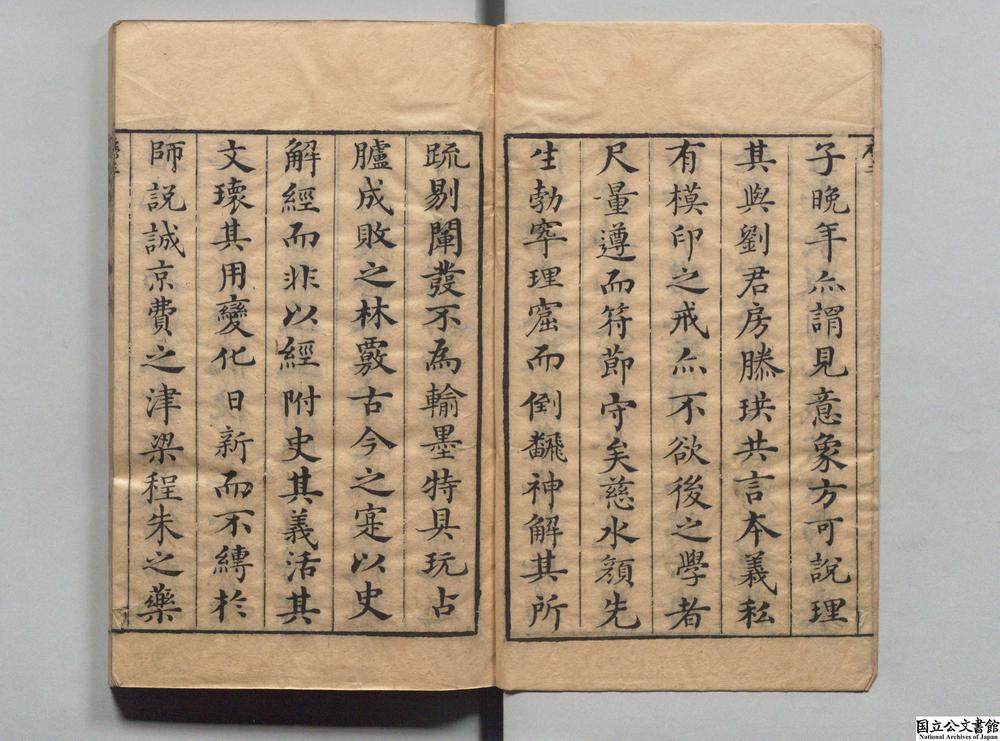 子晚年亦謂見意象方可說理
其與劉君房滕珙共言本義私
有模印之戒亦不欲後之學者
尺量遵而符節守矣慈水顏先
生勃窣理窟而倒飜神解其所
疏剔闡發不為輸墨特具玩占
臚成敗之林覈古今之寔以史
解經而非以經附史其義活其
文瓌其用變化日新而不縛於
師說誠京費之津梁程朱之藥
国立公文書館
National Archives of Japan